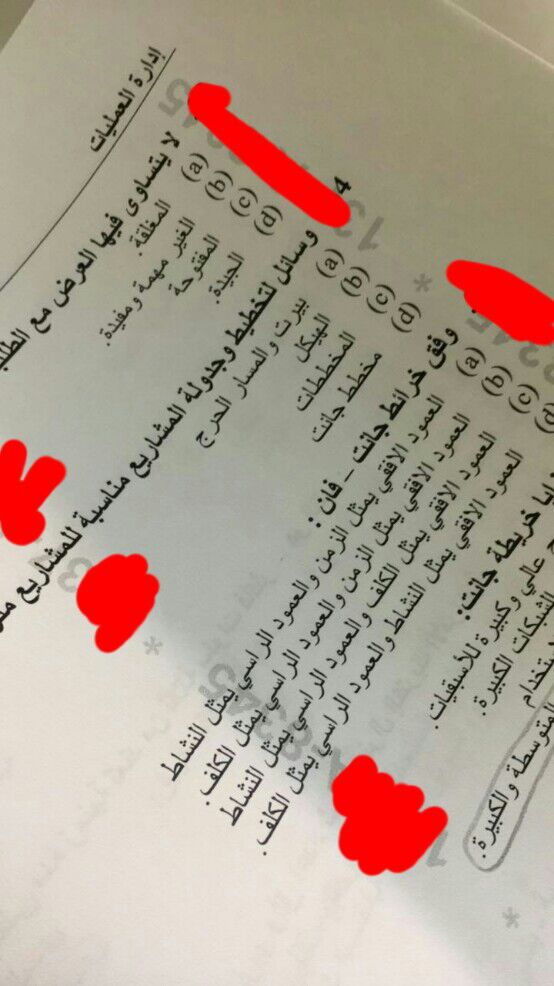 إدارة العمليات
لا يتساوى فيها العرض مع الطلب
(a) المغلقة.
(b) الغير مهمة ومفيدة.
(c) المفتوحة
(d) الجيدة.
4 وسائل لتخطيط وجدولة المشاريع مناسبة للمشاريع
(a) بيرت والمسار الحرج
(b) الهيكل
(c) المخططات
(d) مخطط جانت
وفق خرائط جانت - فان :
(a) العمود الافقي يمثل الزمن والعمود الراسي يمثل النشاط
(b) العمود الافقي يمثل الزمن والعمود الراسي يمثل الكلف.
(c) العمود الافقي يمثل الكلف والعمود الراسي يمثل النشاط
(d) العمود الافقي يمثل النشاط والعمود الراسي يمثل الكلف.
خريطة جانت:
عالي وكبيرة للأسبقيات.
الشبكات الكبيرة.
المتوسطة والكبيرة.